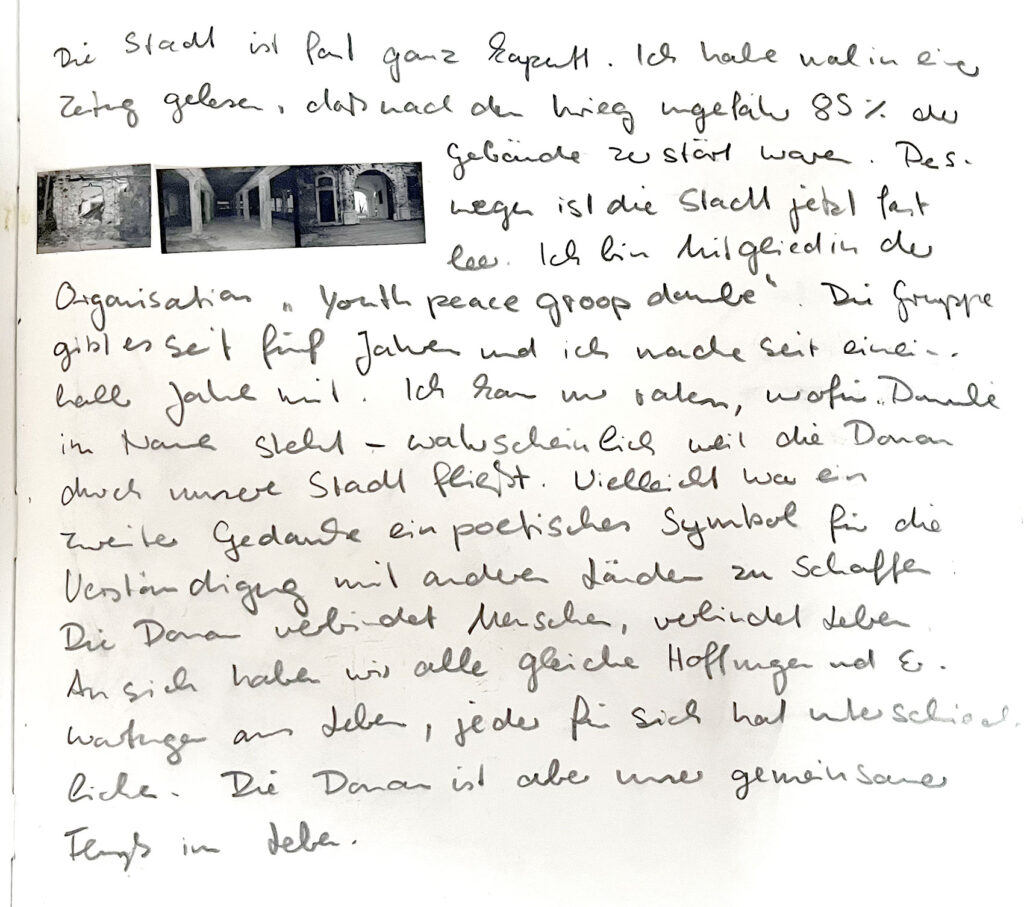 Die Stadt ist fast ganz kaputt. Ich habe mal in einer
Zeitung gelesen, daß nach dem Krieg ungefähr 85 % der
Gebäude zerstört waren. Des-
wegen ist die Stadt jetzt fast
leer. Ich bin Mitglied in der
Organisation „Youth peace groop danube“. Die Gruppe
gibt es seit fünf Jahren und ich mache seit einein-
halb Jahren mit. Ich kann nur raten, wofür „Danube
im Name steht – wahrscheinlich weil die Donau
durch unsere Stadt fließt. Vielleicht war ein
zweiter Gedanke ein poetisches Symbol für die
Verständigung mit anderen Ländern zu schaffen.
Die Donau verbindet Menschen, verbindet Leben.
An sich haben wir alle gleiche Hoffnungen und Er-
wartungen ans Leben, jeder für sich hat unterschied-
liche. Die Donau ist aber unser gemeinsamer
im Leben.